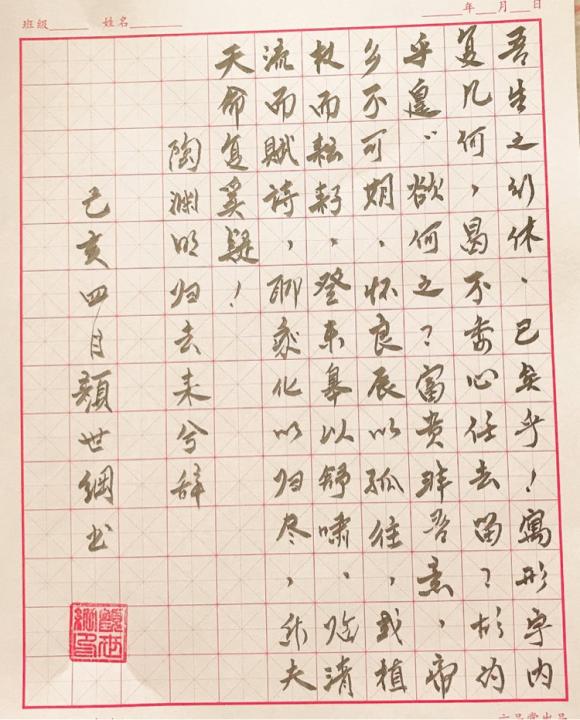 班级 姓名 年 月 日
吾生之行休。已矣乎！寓形宇内
复几何，曷不委心任去留？胡为
乎遑〃欲何之？富贵非吾愿，帝
乡不可期，怀良辰以孤往，或植
杖而耘耔。登东皋以舒啸，临清
流而赋诗，聊乘化以归尽，乐夫
天命复奚疑！
陶渊明归去来兮辞
己亥四月颜世纲书